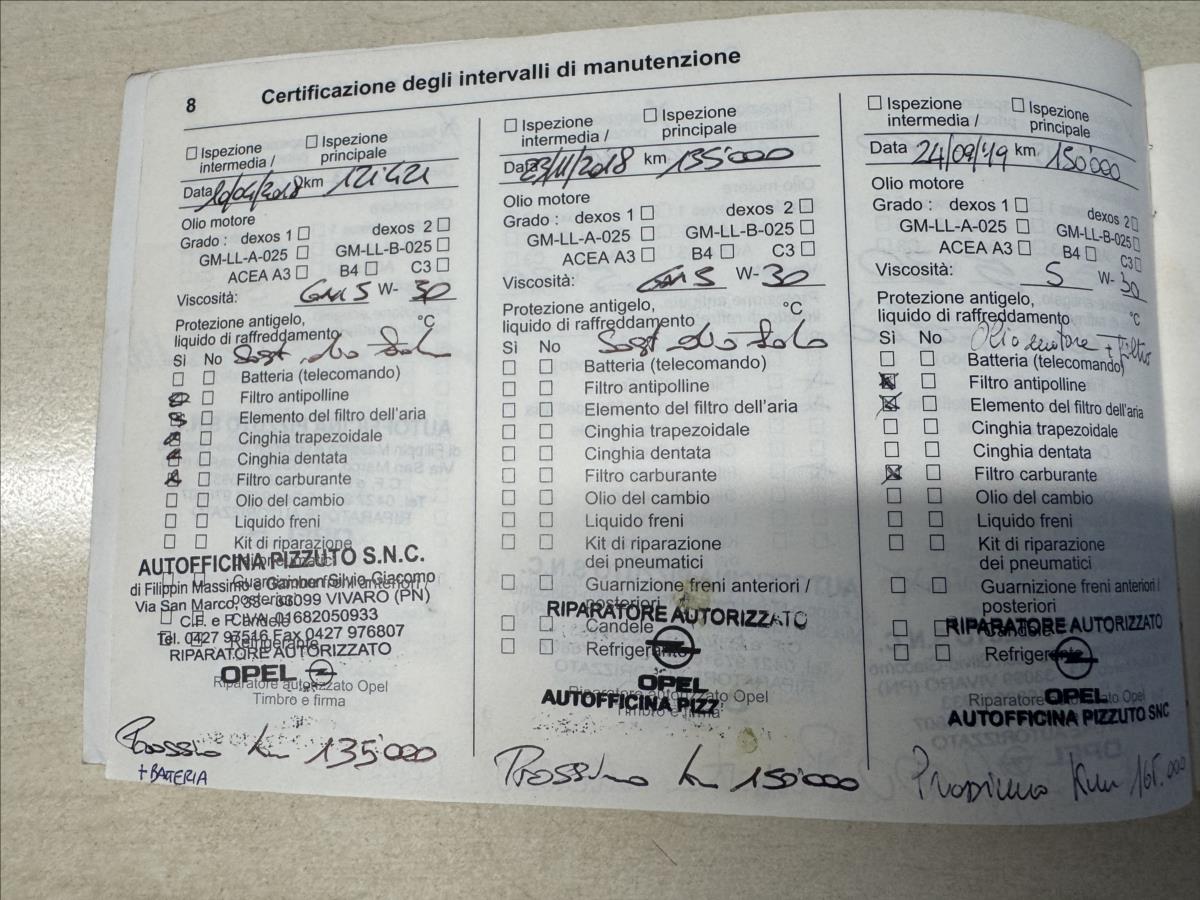 8 Certificazione degli intervalli di manutenzione
Ispezione intermedia /
Ispezione principale
Data 10/04/2018 km
Olio motore
Grado : dexos 1 dexos 2
GM-LL-A-025 GM-LL-B-025
ACEA A3 B4 C3
Viscosità: GM 5 W- 30
Protezione antigelo,
liquido di raffreddamento °C
Sì No Sost. olio
Batteria (telecomando)
Filtro antipolline
Elemento del filtro dell'aria
Cinghia trapezoidale
Cinghia dentata
Filtro carburante
Olio del cambio
Liquido freni
Kit di riparazione
dei pneumatici
Guarnizione freni anteriori /
posteriori
Candele
Refrigerante
AUTOFFICINA PIZZUTO S.N.C.
di Filippin Massimo e Gambon Silvio Giacomo
Via San Marco, 33 - 33099 VIVARO (PN)
C.F. e P. IVA 01682050933
Tel. 0427 97516 Fax 0427 976807
RIPARATORE AUTORIZZATO
OPEL
Riparatore autorizzato Opel
Timbro e firma
Prossimo Km 135'000
+ BATTERIA
Ispezione intermedia /
Ispezione principale
Data 23/11/2018 km 135'000
Olio motore
Grado : dexos 1 dexos 2
GM-LL-A-025 GM-LL-B-025
ACEA A3 B4 C3
Viscosità: GM 5 W- 30
Protezione antigelo,
liquido di raffreddamento °C
Sì No Sost. olio
Batteria (telecomando)
Filtro antipolline
Elemento del filtro dell'aria
Cinghia trapezoidale
Cinghia dentata
Filtro carburante
Olio del cambio
Liquido freni
Kit di riparazione
dei pneumatici
Guarnizione freni anteriori /
posteriori
Candele
Refrigerante
RIPARATORE AUTORIZZATO
OPEL
AUTOFFICINA PIZZ
Riparatore autorizzato Opel
Timbro e firma
Prossimo Km 150'000
Ispezione intermedia /
Ispezione principale
Data 24/09/19 km 150'000
Olio motore
Grado : dexos 1 dexos 2
GM-LL-A-025 GM-LL-B-025
ACEA A3 B4 C3
Viscosità: 5 W- 30
Protezione antigelo,
liquido di raffreddamento °C
Sì No Olio motore + Filtro
Batteria (telecomando)
Filtro antipolline
Elemento del filtro dell'aria
Cinghia trapezoidale
Cinghia dentata
Filtro carburante
Olio del cambio
Liquido freni
Kit di riparazione
dei pneumatici
Guarnizione freni anteriori /
posteriori
Candele
Refrigerante
RIPARATORE AUTORIZZATO
OPEL
Riparatore autorizzato Opel
AUTOFFICINA PIZZUTO SNC
Prossimo Km 165.000